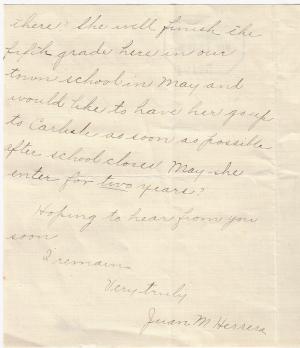 there? She will finish the
fifth grade here in our
town school in May and
would like to have her go up
to Carlisle as soon as possible
after school closes May she
enter for two years?
Hoping to hear from you
soon
I remain
Very truly
Juan M Herrera